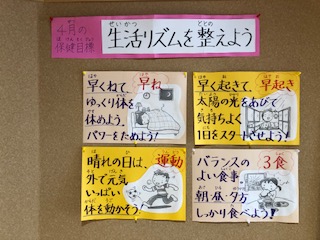 4月の
保健目標
生活リズムを整えよう
早くねて、早ね
ゆっくり体を
休めよう。
パワーをためよう!
早く起きて、早起き
太陽の光をあびて
気持ちよく
1日をスタートさせよう!
晴れの日は、運動
外で元気
いっぱい
体を動かそう!
バランスの 3食
よい食事
朝・昼・夕方
しっかり食べよう!